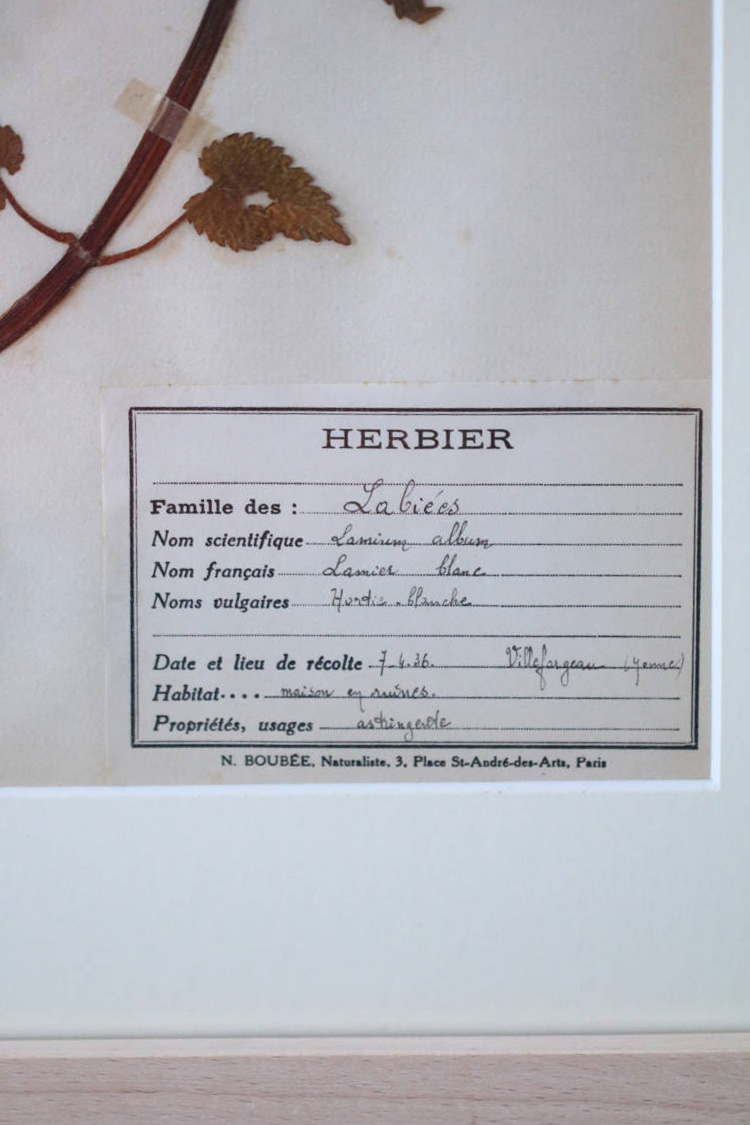 HERBIER
Famille des : Labiées
Nom scientifique Lamium album
Nom français Lamier blanc
Noms vulgaires blanche
Date et lieu de récolte 7.4.36. Villefargeau (Yonne)
Habitat.... maison en ruines.
Propriétés, usages astringente
N. BOUBÉE, Naturaliste, 3, Place St-André-des-Arts, Paris